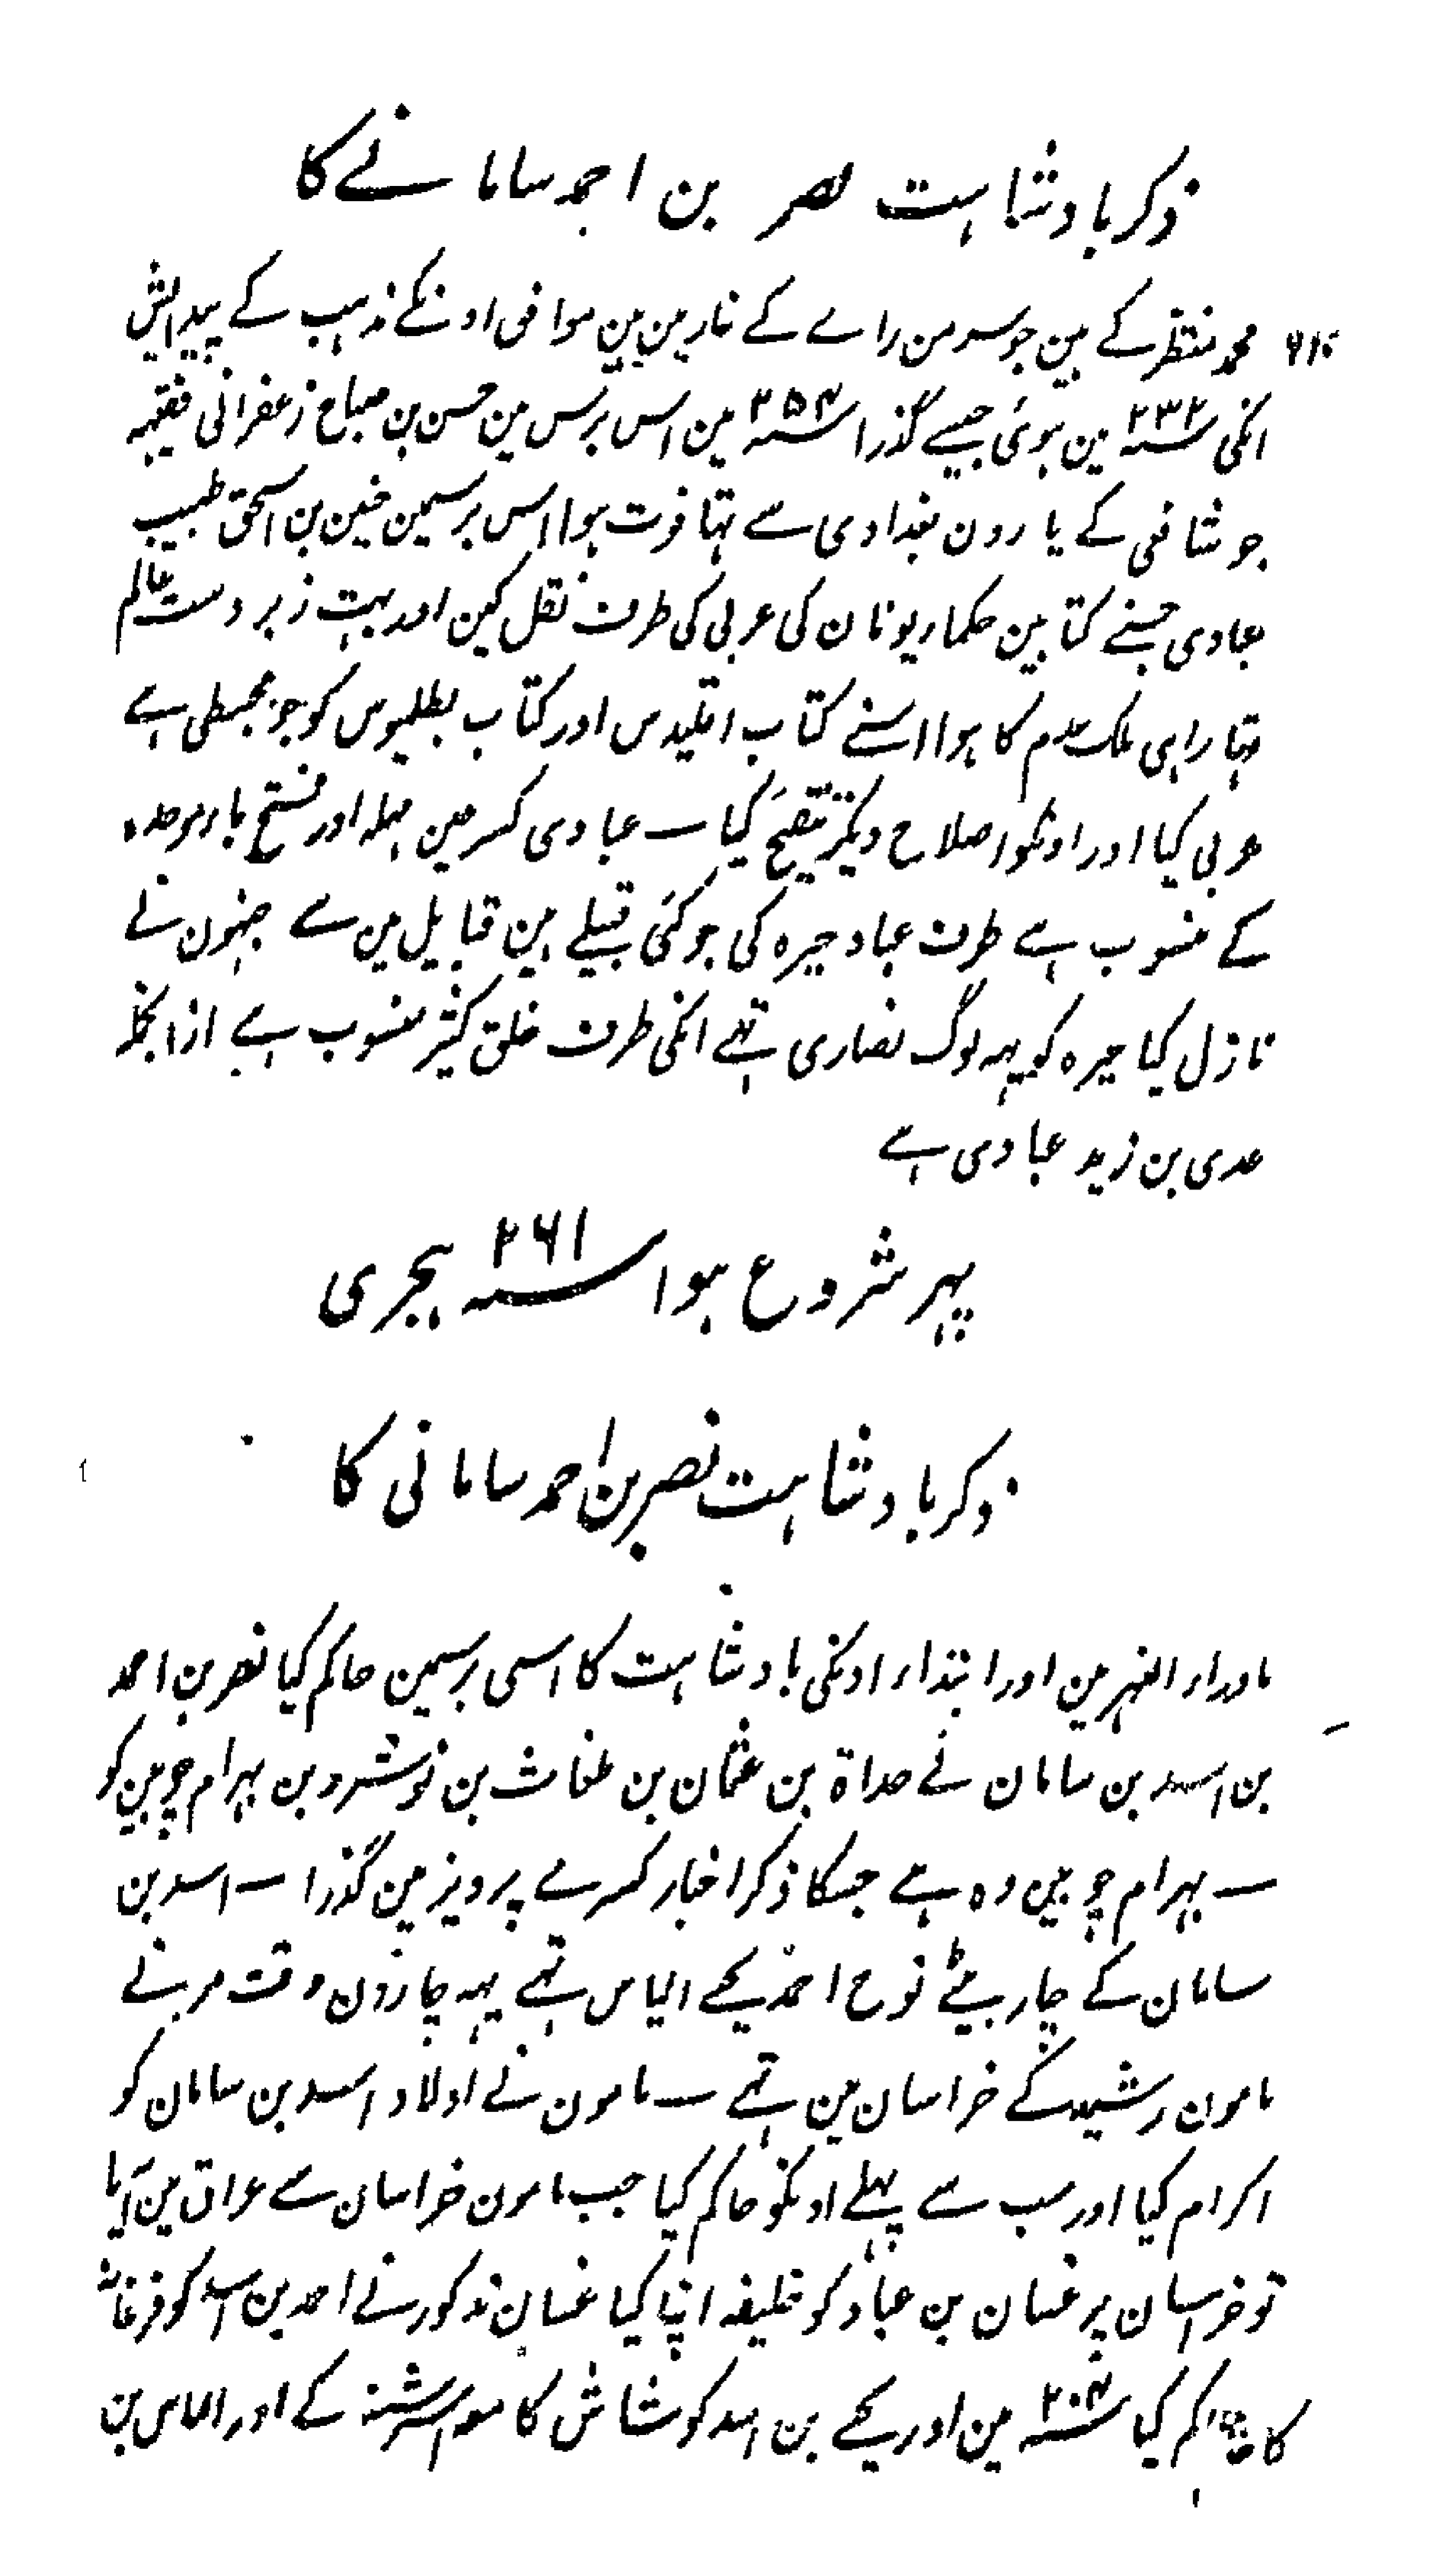 ذکر بادشاہت نصر بن احمد سامانے کا
محمد منتظر کے ہین جو سر من رائے کے غار مین ہین موافق اونکے مذہب کے پیدایش
انکی ۲۳۲ سنہ مین ہوئی جیسے گذرا ۲۵۴ سنہ مین اس برس مین حسن بن صباح زعفرانی فقیہہ
جو شافعی کے یارون بغدادی سے تہا فوت ہوا اس برسمین حنین بن اسحق طبیب
عبادی جسنے کتابین حکمار یونان کی عربی کی طرف نقل کین اور بہت زبردست عالم
تہا راہی ملک عدم کا ہوا اسنے کتاب اقلیدس اور کتاب بطلیوس کو جو مجسطی ہے
عربی کیا اور اونکو اصلاح دیکر تنقیح کیا ـ عبادی کسر عین مہلہ اور فتح بار موحدہ
کے منسوب ہے طرف عباد حیرہ کی جو کئی قبیلے ہین قبایل مین سے جنہون نے
نازل کیا حیرہ کو یہہ لوگ نصاری تہے انکی طرف خلق کثیر منسوب ہے ازانجملہ
عدی بن زید عبادی ہے
پہر شروع ہوا ۲۶۱ سنہ ہجری
ذکر بادشاہت نصر بن احمد سامانی کا
ماوراء النہر مین اور ابتداء اونکی بادشاہت کا اسی برسمین حاکم کیا نصر بن احمد
بن اسد بن سامان نے حداۃ بن عثمان بن طغاث بن نوشرد بن بہرام چوبین کو
ـ بہرام چوبین وہ ہے جسکا ذکر اخبار کسرے پرویز مین گذرا ـ اسد بن
سامان کے چار بیٹے نوح احمد یحے الیاس تہے یہہ چارون وقت مرنے
مامون رشید کے خراسان مین تہے ـ مامون نے اولاد اسد بن سامان کو
اکرام کیا اور سب سے پہلے اونکو حاکم کیا جب مامون خراسان سے عراق مین آیا
تو خراسان پر غسان بن عباد کو خلیفہ اپنا کیا غسان مذکور نے احمد بن اسد کو فرغانہ
کا حاکم کیا ۲۰۴ سنہ مین اور یحے بن اسد کو شاش کا معہ اسرشنہ کے اور الیاس بن